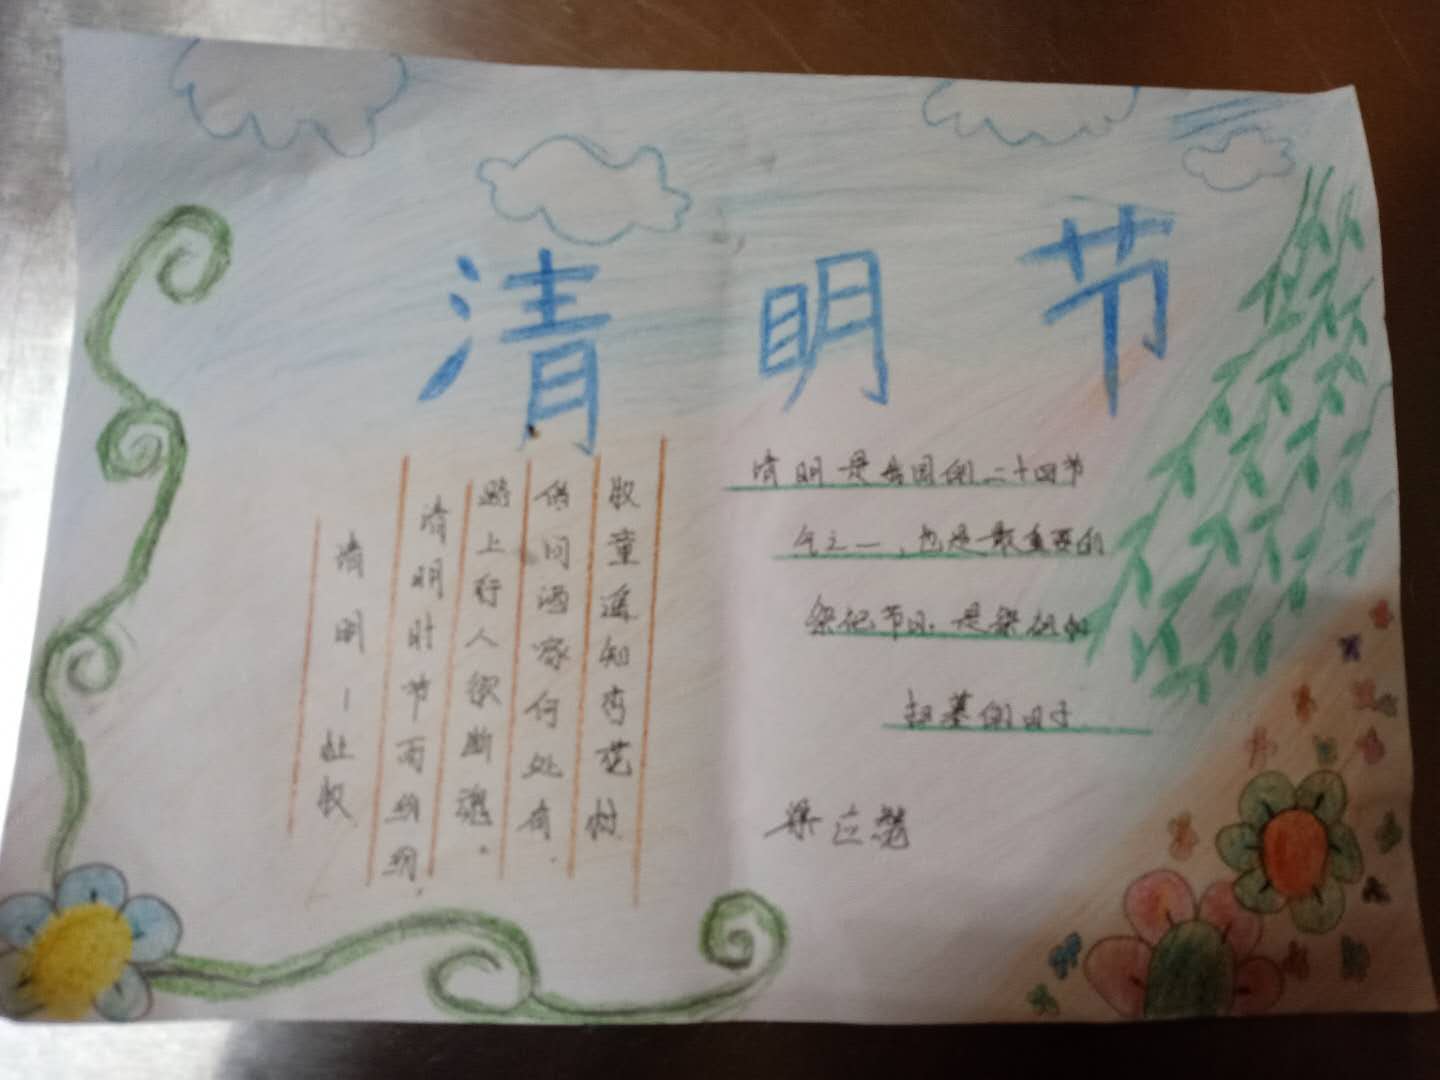 清明节
清明-杜牧
清明时节雨纷纷,
路上行人欲断魂。
借问酒家何处有.
牧童遥知杏花村
清明是我国的二十四节
气之一,也是最重要的
祭祀节日.是祭祖和
扫墓的日子.
梁应